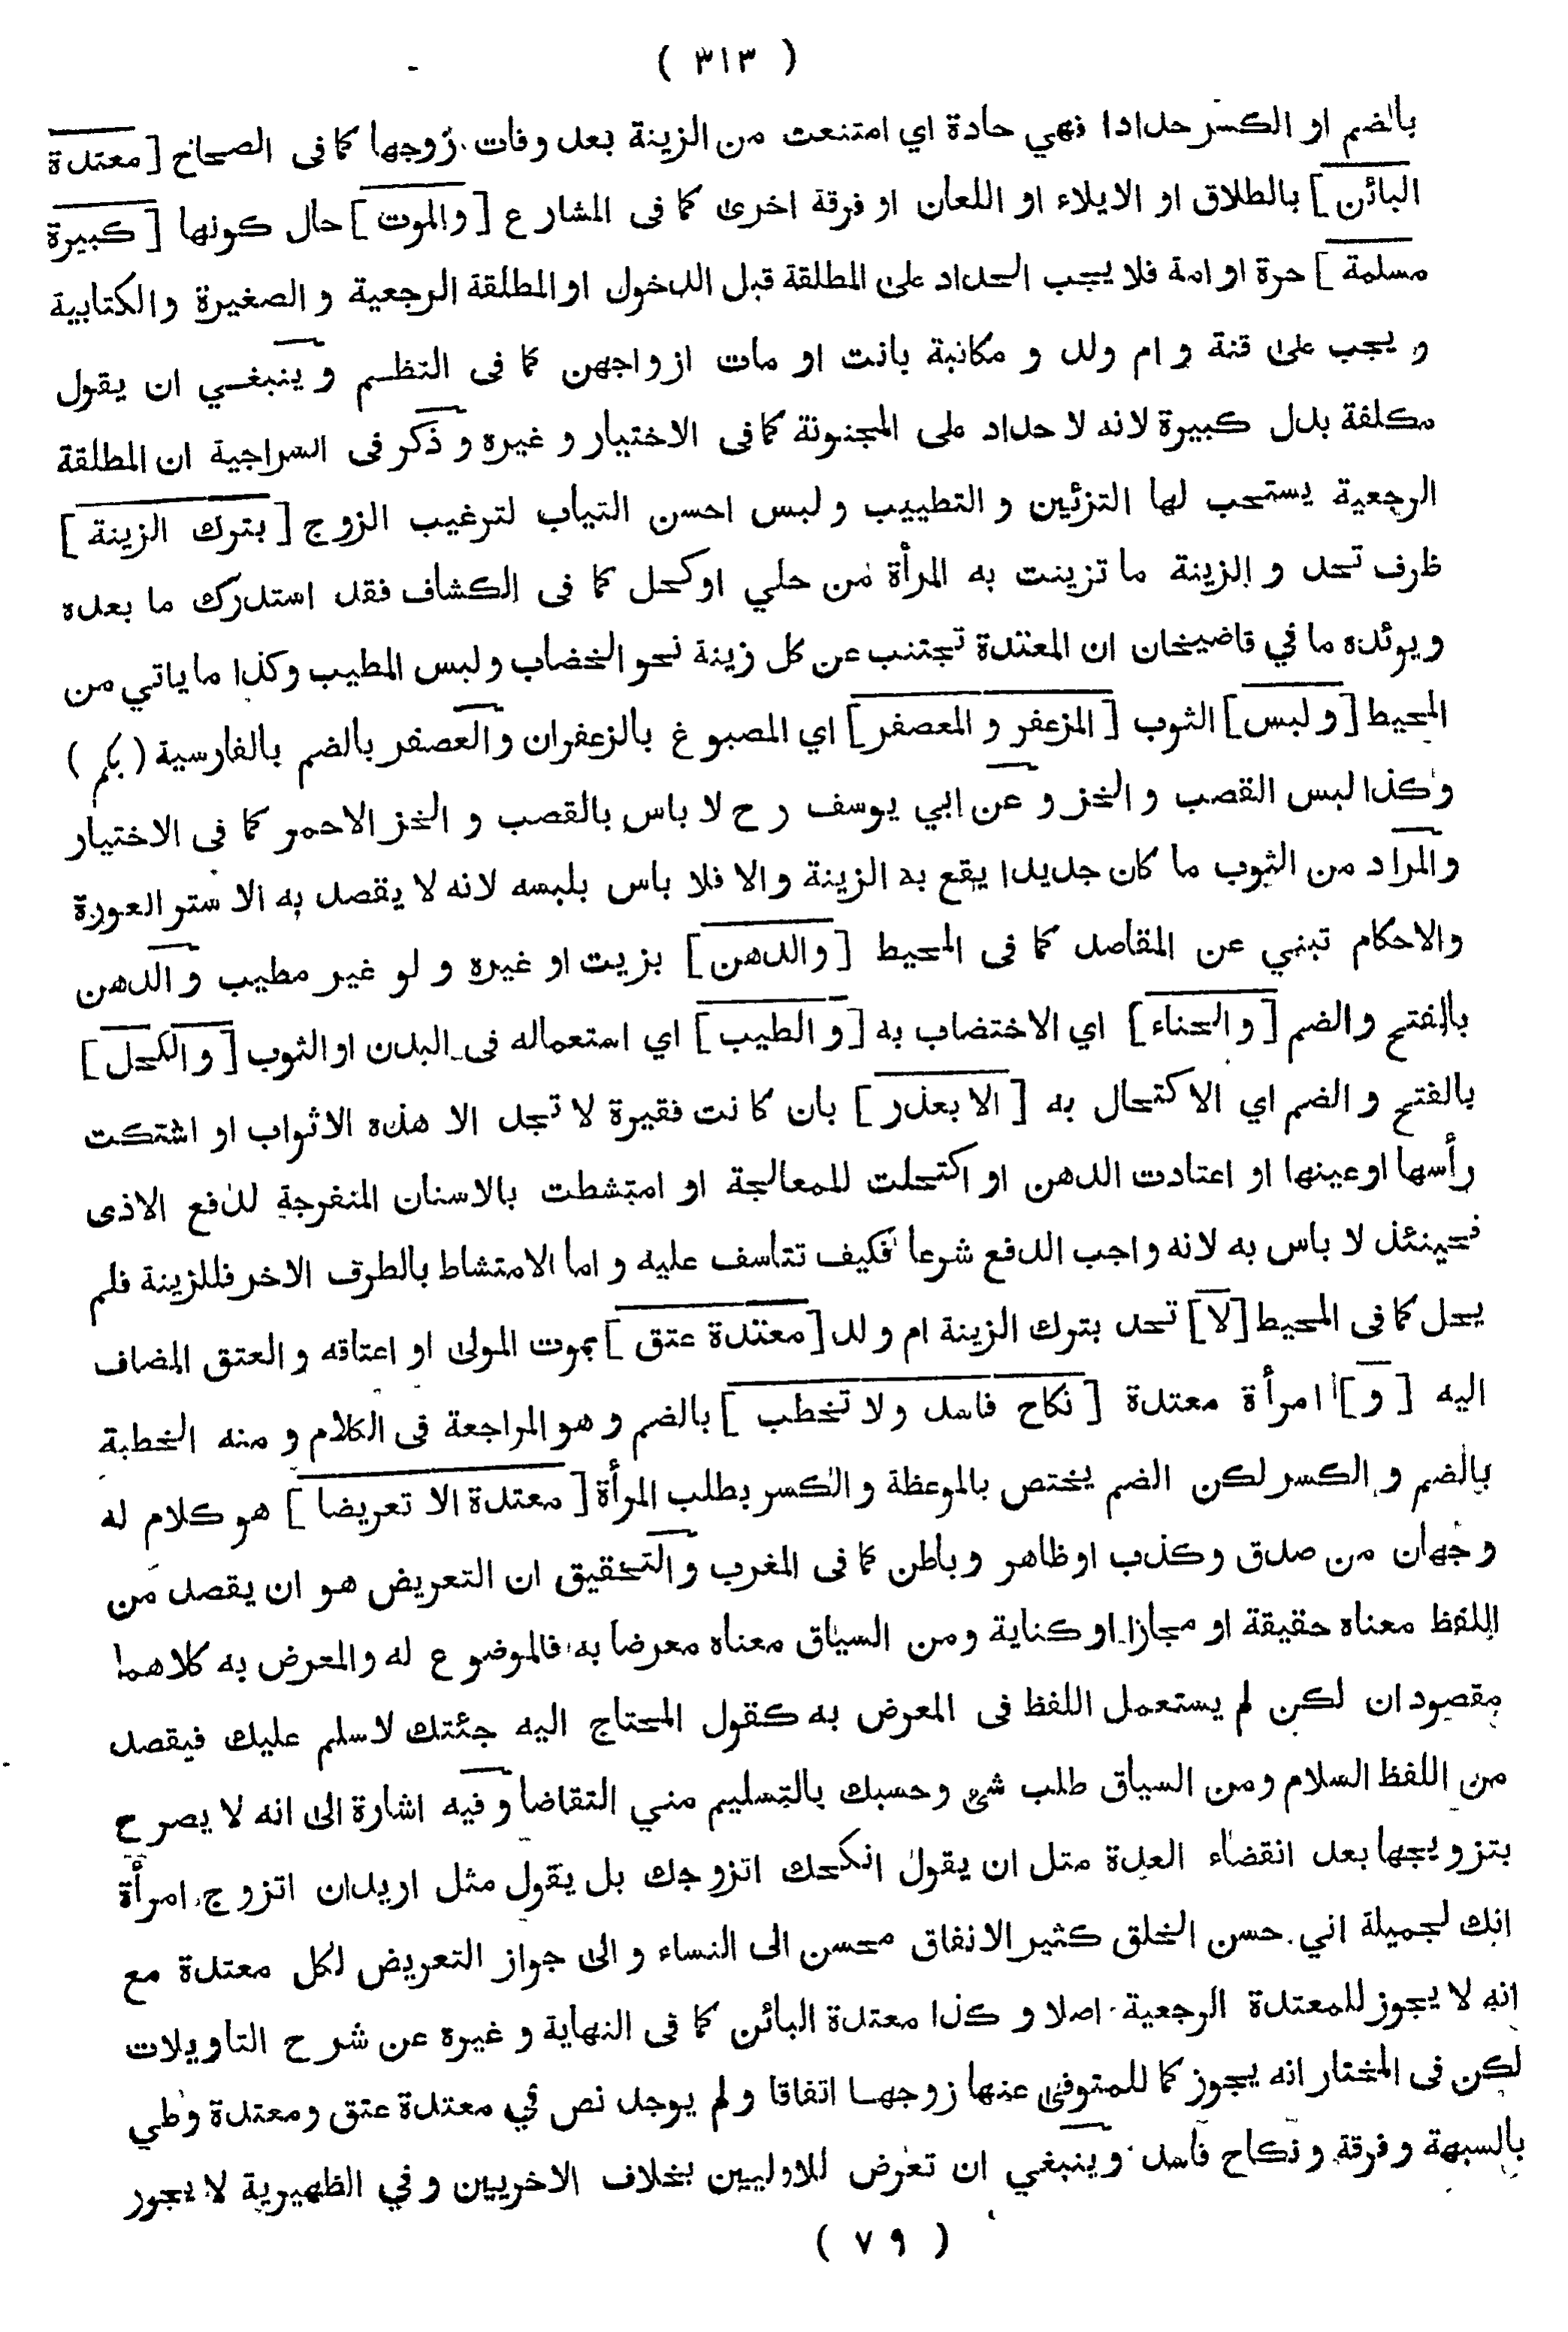 ( ٣١٣ )
بالضم او الكسر حدادا فهي حادة اي امتنعت من الزينة بعد وفات زوجها كما فى الصحاح [ معتدة
البائن ] بالطلاق او الايلاء او اللعان او فرقة اخرى كما فى المشارع [ والموت ] حال كونها [ كبيرة
مسلمة ] حرة او امة فلا يجب الحداد على المطلقة قبل الدخول او المطلقة الرجعية و الصغيرة والكتابية
و يجب على قنة و ام ولد و مكاتبة بانت او مات ازواجهن كما فى النظم و ينبغي ان يقول
مكلفة بدل كبيرة لانه لا حداد على المجنونة كما فى الاختيار و غيره و ذكر فى السراجية ان المطلقة
الرجعية يستحب لها التزئين و التطييب و لبس احسن الثياب لترغيب الزوج [ بترك الزينة ]
ظرف تحد و الزينة ما تزينت به المرأة من حلي او كحل كما فى الكشاف فقد استدرك ما بعده
ويوئده ما في قاضيخان ان المعتدة تجتنب عن كل زينة نحو الخضاب و لبس المطيب وكذا ما ياتي من
المحيط [ و لبس ] الثوب [ المزعفر و المعصفر ] اي المصبوغ بالزعفران والعصفر بالضم بالفارسية ( بكم )
وكذا لبس القصب و الخز و عن ابي يوسف رح لا باس بالقصب و الخز الاحمر كما فى الاختيار
والمراد من الثوب ما كان جديدا يقع به الزينة والا فلا باس بلبسه لانه لا يقصد به الا ستر العورة
والاحكام تبني عن المقاصد كما فى المحيط [ والدهن ] بزيت او غيره و لو غير مطيب و الدهن
بالفتح والضم [ و الحناء ] اي الاختضاب به [ و الطيب ] اي استعماله فى البدن او الثوب [ و الكحل ]
بالفتح و الضم اي الاكتحال به [ الا بعذر ] بان كانت فقيرة لا تجد الا هذه الاثواب او اشتكت
رأسها او عينها او اعتادت الدهن او اكتحلت للمعالجة او امتشطت بالاسنان المنفرجة لدفع الاذى
فحينئذ لا باس به لانه واجب الدفع شرعا فكيف تتاسف عليه و اما الامتشاط بالطرف الاخر فللزينة فلم
يحل كما فى المحيط [ لا ] تحد بترك الزينة ام ولد [ معتدة عتق ] بموت المولى او اعتاقه و العتق المضاف
اليه [ و ] امرأة معتدة [ نكاح فاسد و لا تخطب ] بالضم و هو المراجعة فى الكلام و منه الخطبة
بالضم و الكسر لكن الضم يختص بالموعظة و الكسر بطلب المرأة [ معتدة الا تعريضا ] هو كلام له
وجهان من صدق وكذب او ظاهر و باطن كما فى المغرب والتحقيق ان التعريض هو ان يقصد من
اللفظ معناه حقيقة او مجازا او كناية و من السياق معناه معرضا به فالموضوع له والمعرض به كلاهما
مقصودان لكن لم يستعمل اللفظ فى المعرض به كقول المحتاج اليه جئتك لاسلم عليك فيقصد
من اللفظ السلام و من السياق طلب شئ وحسبك بالتسليم مني التقاضا و فيه اشارة الى انه لا يصرح
بتزويجها بعد انقضاء العدة مثل ان يقول انكحك اتزوجك بل يقول مثل اريد ان اتزوج امرأة
انك لجميلة اني حسن الخلق كثير الانفاق محسن الى النساء و الى جواز التعريض لكل معتدة مع
انه لا يجوز للمعتدة الرجعية اصلا و كذا معتدة البائن كما فى النهاية و غيره عن شرح التاويلات
لكن فى المختار انه يجوز كما للمتوفى عنها زوجها اتفاقا و لم يوجد نص في معتدة عتق ومعتدة وطي
بالسبهة و فرقة و نكاح فاسد وينبغي ان تعرض للاوليين بخلاف الاخريين و في الظهيرية لا يجوز
( ٧٩ )